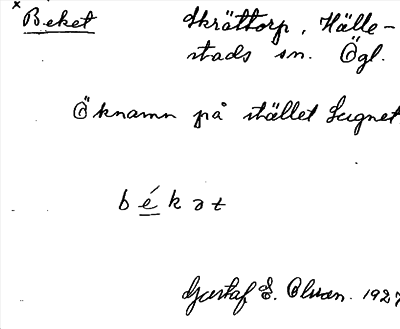 × Beket Skrättorp, Hälle-
stads sn. Ögl.
Öknamn på stället Lugnet
b é k ə t
Gustaf E. Olsson. 1927